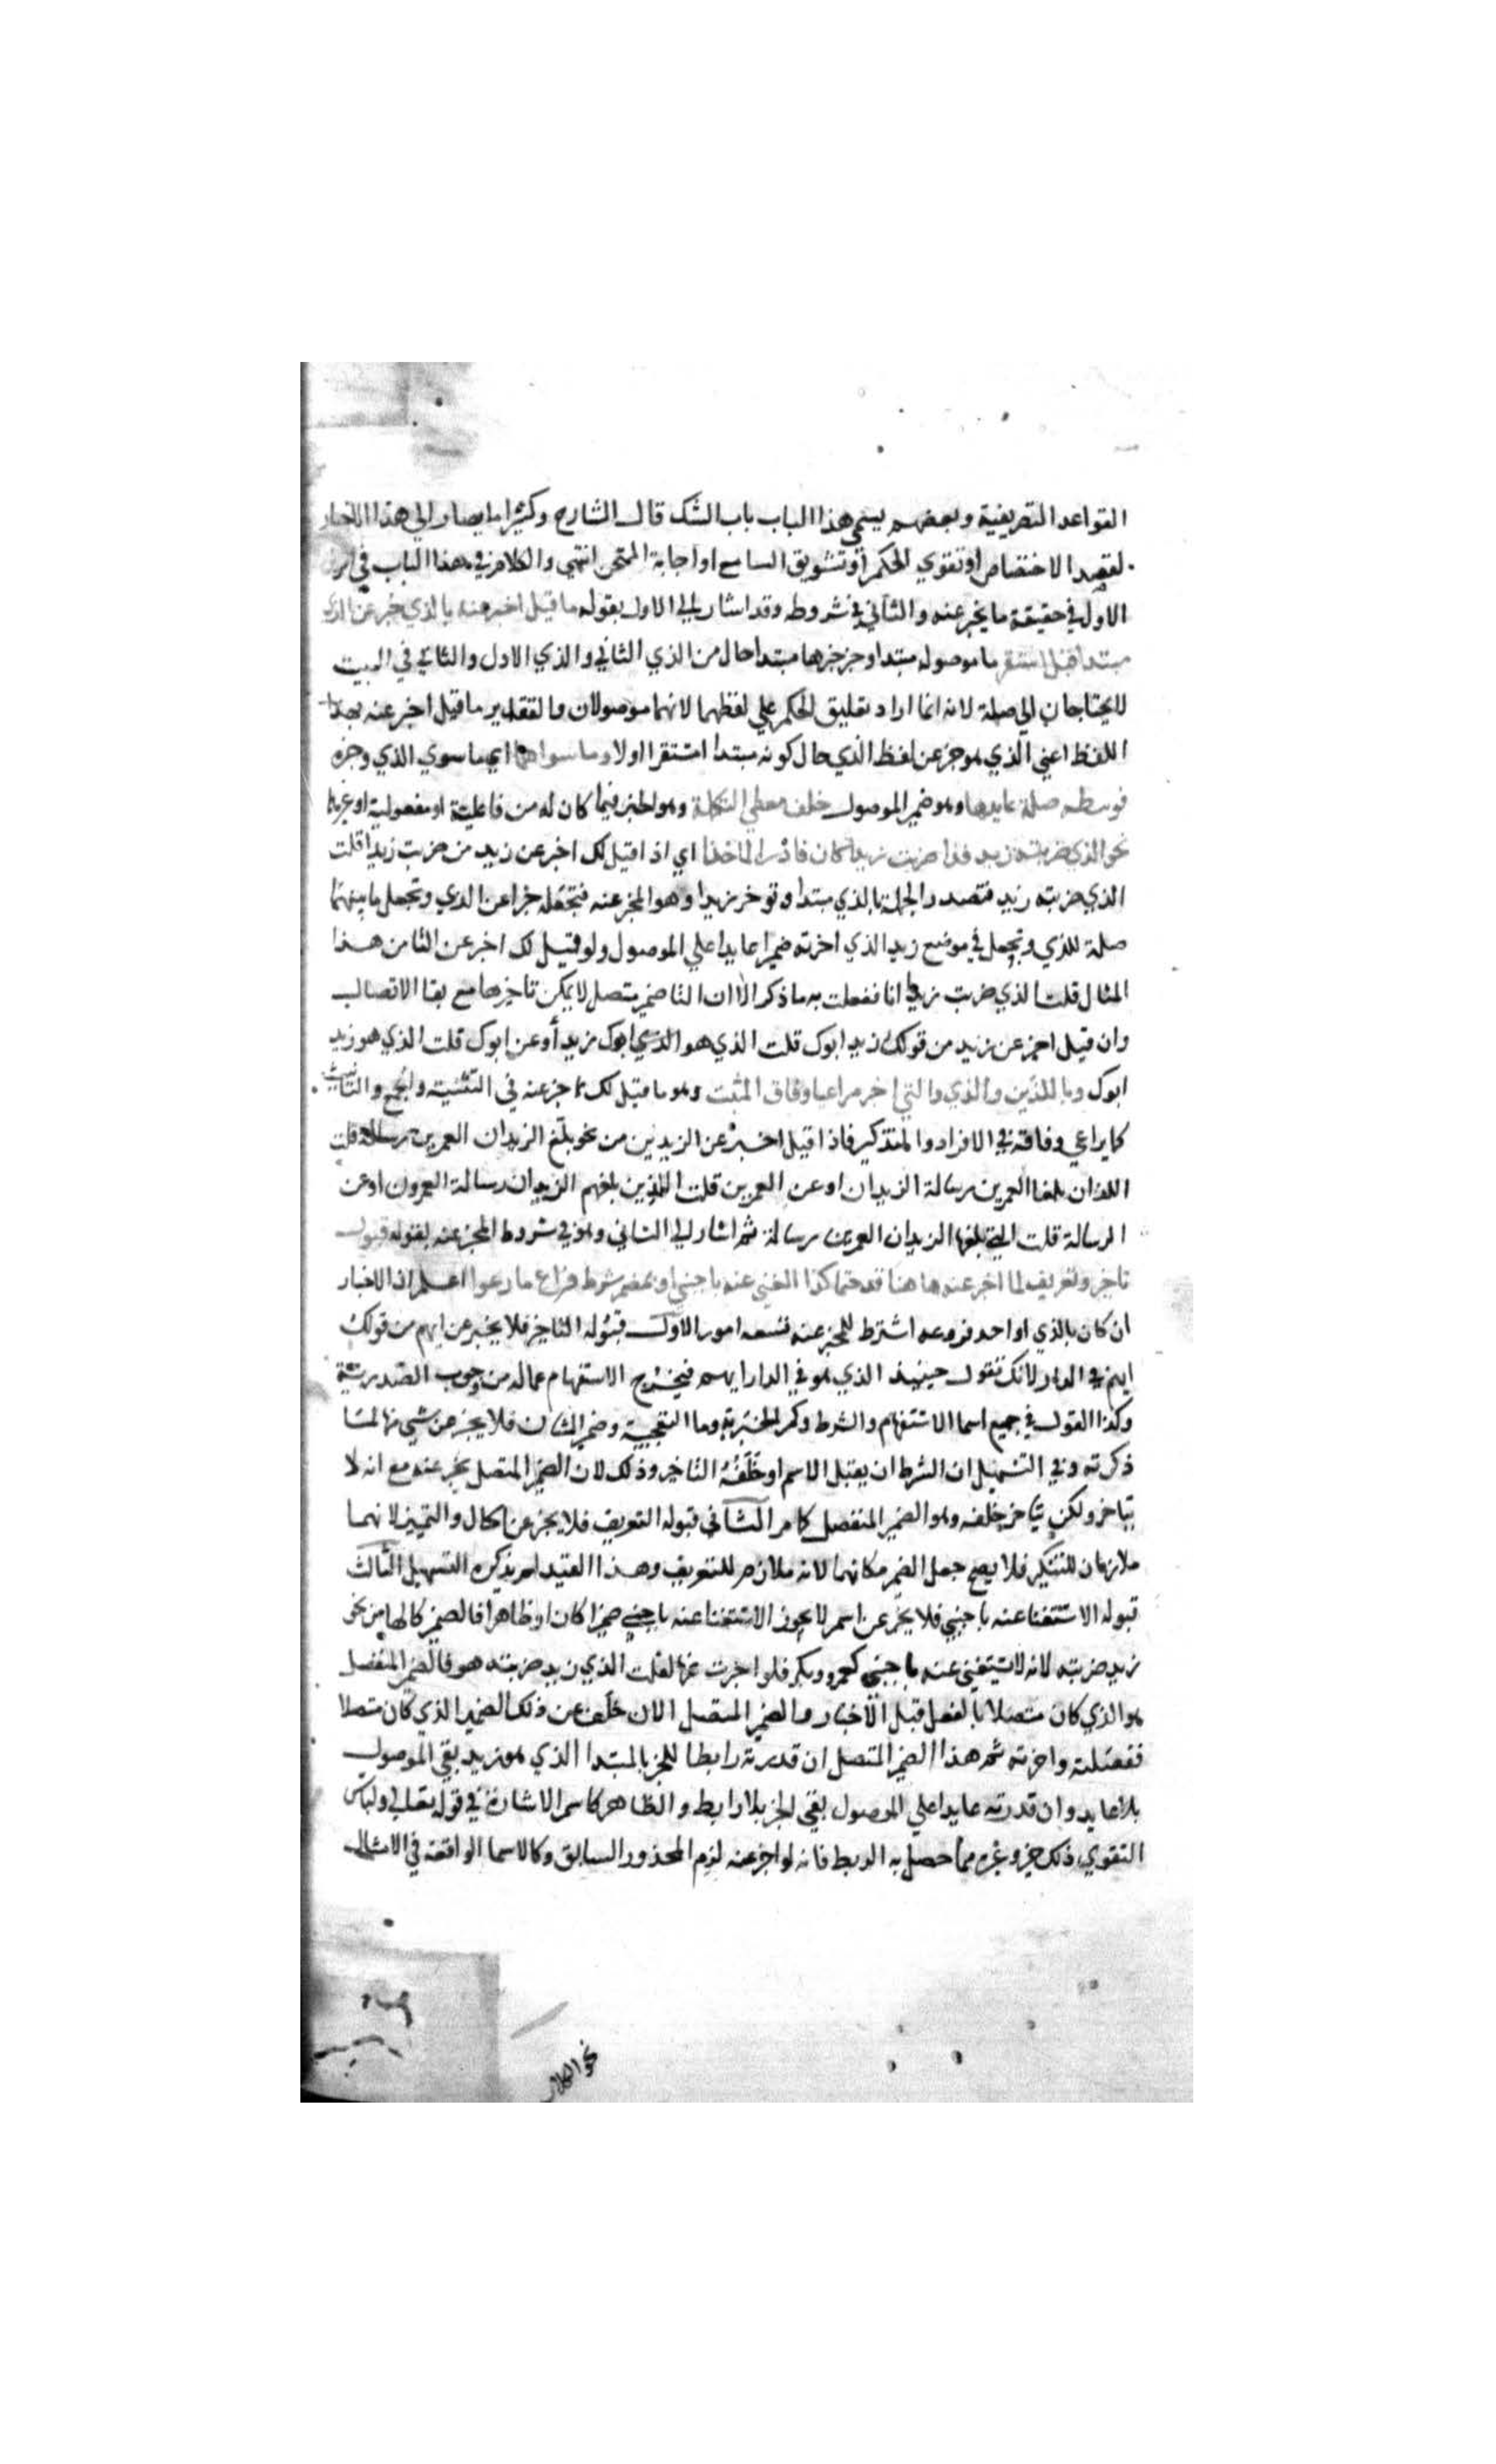 القواعد التصريفية وبعضهم يسمي هذا الباب باب الشك قال الشارح وكثيرا ما يصار الي هذا الاخبار
لقصد الاختصاص او تقوي الحكم او تشويق السامع او اجابة الممتحن انتهي والكلام في هذا الباب في امرين
الاول في حقيقة ما يخبر عنه والثاني في شروطه وقد اشار الي الاول بقوله ما قيل اخبر عنه بالذي خبر عن الذي
مبتدا قبل استقر ما موصوله مبتدا وخبر خبرها مبتدا حال من الذي الثاني والذي الاول والثاني في البيت
لا يحتاجان الي صلة لانه انما اراد تعليق الحكم علي لفظهما لا انهما موصولان والتقدير ما قيل اخبر عنه بهذا
اللفظ اعني الذي هو خبر عن لفظ الذي حال كونه مبتدا استقرا اولا وما سواهما اي ما سوي الذي وخبره
فوسطه صلة عايدها وهو ضمير الموصول خلف معطي التكملة وهو الخبر فيما كان له من فاعلية او مفعولية او غيرهما
نحو الذي ضربته زيد فذا ضربت زيدا كان فادر الماخذا اي اذا قيل لك اخبر عن زيد من ضربت زيدا قلت
الذي ضربته زيد فتصدر الجملة بالذي مبتدا وتوخر زيدا وهو المخبر عنه فتجعله خبرا عن الذي وتجعل ما بينهما
صلة للذي وتجعل في موضع زيد الذي اخرته ضميرا عايدا علي الموصول ولو قيل لك اخبر عن التا من هذا
المثال قلت الذي ضرب زيدا انا ففعلت به ما ذكر الا ان التا ضمير متصل لا يمكن تاخيرها مع بقا الاتصال
وان قيل اخبر عن زيد من قولك زيد ابوك قلت الذي هو ابوك زيد أو عن ابوك قلت الذي هو زيد
ابوك وباللذين والذين والتي اخبر مراعيا وفاق المثبت وهو ما قيل لك اخبر عنه في التثنية والجمع والتانيث
كما يراعي وفاقه في الافراد والتذكير فاذا قيل اخبر عن الزيدين من نحو بلغ الزيدان العمرين رسالة قلت
اللذان بلغا العمرين رسالة الزيدان او عن العمرين قلت الذين بلغهم الزيدان رسالة العمرون او عن
الرسالة قلت التي بلغها الزيدان العمرين رسالة ثم اشار الي الثاني وهو في شروط المخبر عنه بقوله قبول
تاخير وتعريف لما اخبر عنه هاهنا قد حتما كذا الغني عنه باجنبي او بمضمر شرط فراع ما رعوا اعلم ان الاخبار
ان كان بالذي او احد فروعه اشترط للمخبر عنه تسعه امور الاول قبوله التاخير فلا يخبر عن ايهم من قولك
ايهم في الدار لانك تقول حينيذ الذي هو في الدار ايهم فيخرج الاستفهام عما له من وجوب الصدرية
وكذا القول في جميع اسما الاستفهام والشرط وكم الخبرية وما التعجبية وضمير الشان فلا يخبر عن شي منها لما
ذكرته وفي التسهيل ان الشرط ان يقبل الاسم او خلفه التاخير وذلك لان الضمير المتصل يخبر عنه مع انه لا
يتاخر ولكن يتاخر خلفه وهو الضمير المنفصل كما مر الثاني قبوله التعريف فلا يخبر عن الحال والتمييز لانهما
ملازمان للتنكير فلا يصح جعل الضمير مكانهما لانه ملازم للتعريف وهذا القيد لم يذكره التسهيل الثالث
قبوله الاستغنا عنه باجنبي فلا يخبر عن اسم لا يجوز الاستغنا عنه باجنبي ضميرا كان او ظاهرا فالضمير كالها من نحو
زيد ضربته لانه لا يستغني عنه باجنبي كعمرو وبكر فلو اخبرت عنها لقلت الذي زيد ضربته هو فالضمير المنفصل
هو الذي كان متصلا بالفعل قبل الاخبار والضمير المتصل الان خلف عن ذلك الضمير الذي كان متصلا
ففصلته واخرته ثم هذا الضمير المتصل ان قدرته رابطا للخبر بالمبتدا الذي هو زيد بقي الموصول
بلا عايد وان قدرته عايدا علي الموصول بقي الخبر بلا رابط والظاهر كاسم الاشارة في قوله تعالي ولباس
التقوي ذلك خير وغيره مما حصل به الربط فانه لو اخبر عنه لزم المحذور السابق وكالاسما الواقعة في الامثال
نحو الكلاب